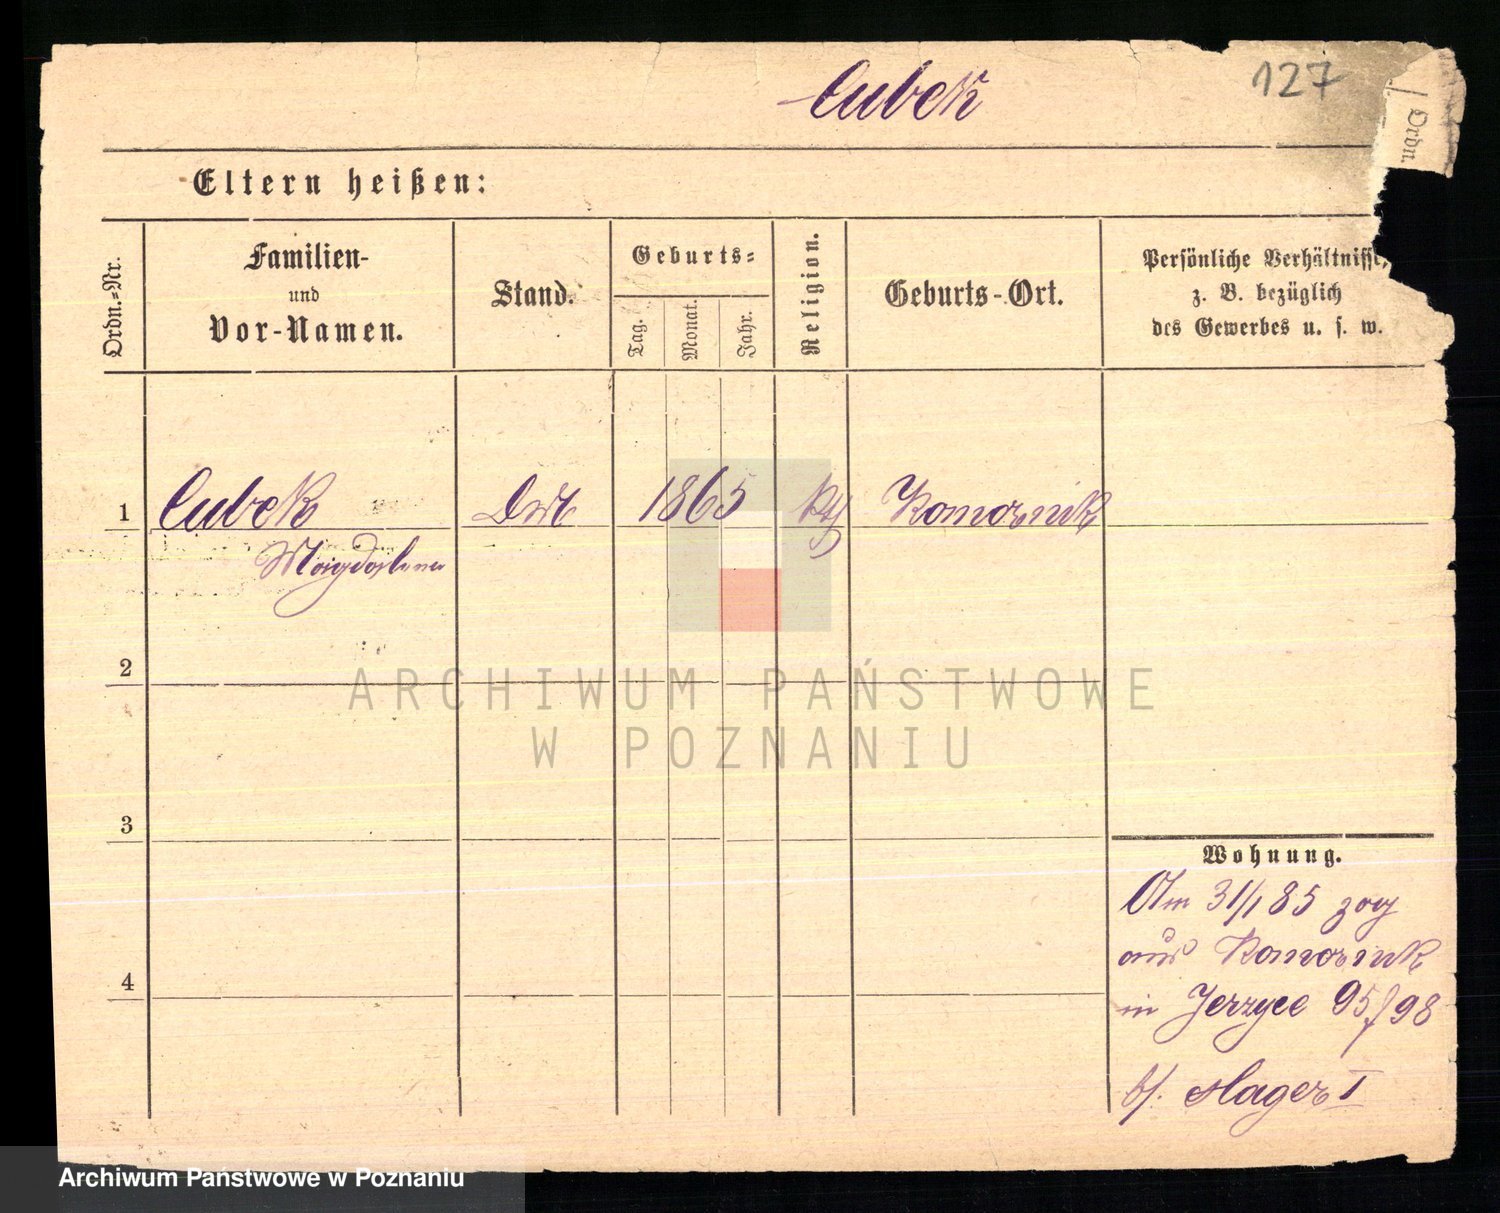 127
Cubek
Ordn.
Eltern heißen:
Ordn.-Nr.
Familien-
und
Vor-Namen.
Stand.
Geburts-
Tag.
Monat.
Jahr.
Religion.
Geburts-Ort.
Persönliche Verhältnisse,
z. B. bezüglich
des Gewerbes u. s. w.
1 Cubek 1865 kth Komornik
Magdalena
2
ARCHIWUM PAŃSTWOWE
W POZNANIU
3
Wohnung.
Am 31/1 85 zog
aus Komornik
4
in Jerzyce 95/98
b/. Hager I
Archiwum Państwowe w Poznaniu